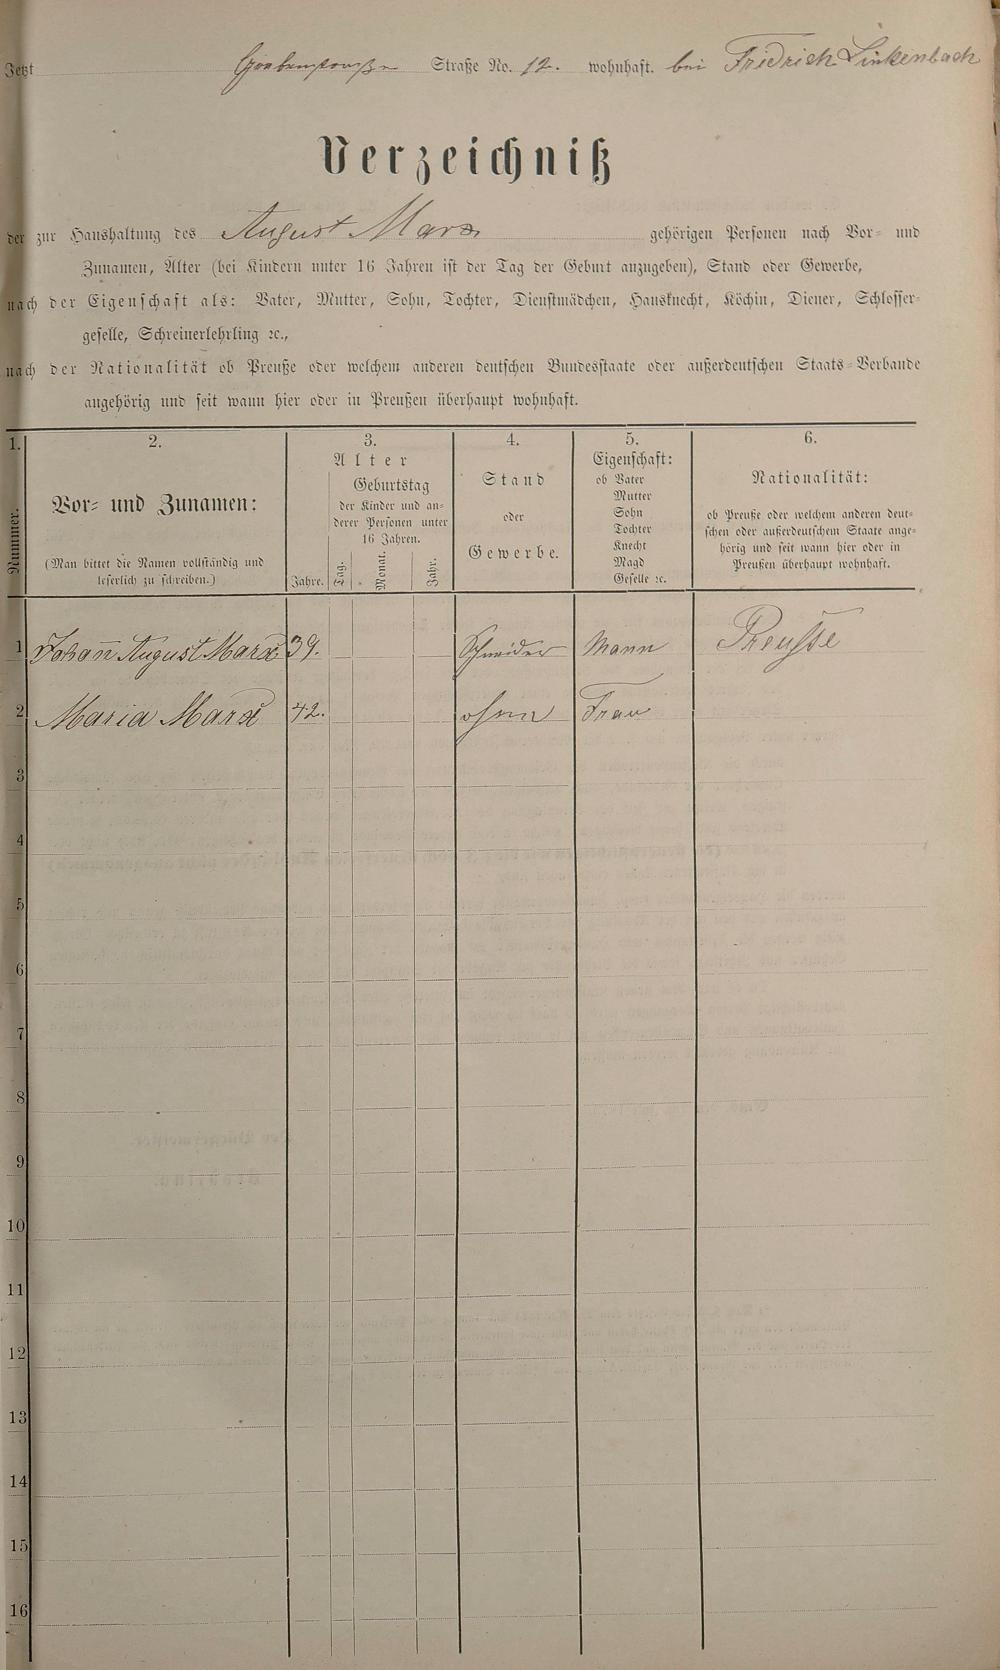 Jetzt Grabenstraße Straße No. 12. wohnhaft. bei Friedrich Linkenbach
Verzeichniß
der zur Haushaltung des August Marx gehörigen Personen nach Vor- und
Zunamen, Alter (bei Kindern unter 16 Jahren ist der Tag der Geburt anzugeben), Stand oder Gewerbe,
nach der Eigenschaft als: Vater, Mutter, Sohn, Tochter, Dienstmädchen, Hausknecht, Köchin, Diener, Schlosser-
geselle, Schreinerlehrling ꝛc.,
nach der Nationalität ob Preuße oder welchem anderen deutschen Bundesstaate oder außerdeutschen Staats-Verbande
angehörig und seit wann hier oder in Preußen überhaupt wohnhaft.
1.
Nummer.
2.
Vor- und Zunamen:
(Man bittet die Namen vollständig und
leserlich zu schreiben.)
3.
Alter
Geburtstag
der Kinder und an-
derer Personen unter
16 Jahren.
Jahre. Tag. Monat. Jahr.
4.
Stand
oder
Gewerbe.
5.
Eigenschaft:
ob Vater
Mutter
Sohn
Tochter
Knecht
Magd
Geselle ꝛc.
6.
Nationalität:
ob Preuße oder welchem anderen deut-
schen oder außerdeutschem Staate ange-
hörig und seit wann hier oder in
Preußen überhaupt wohnhaft.
1 Johan̅ August Marx 39. Schneider Mann Preusse
2 Maria Marx 42. ohne Frau
3
4
5
6
7
8
9
10
11
12
13
14
15
16